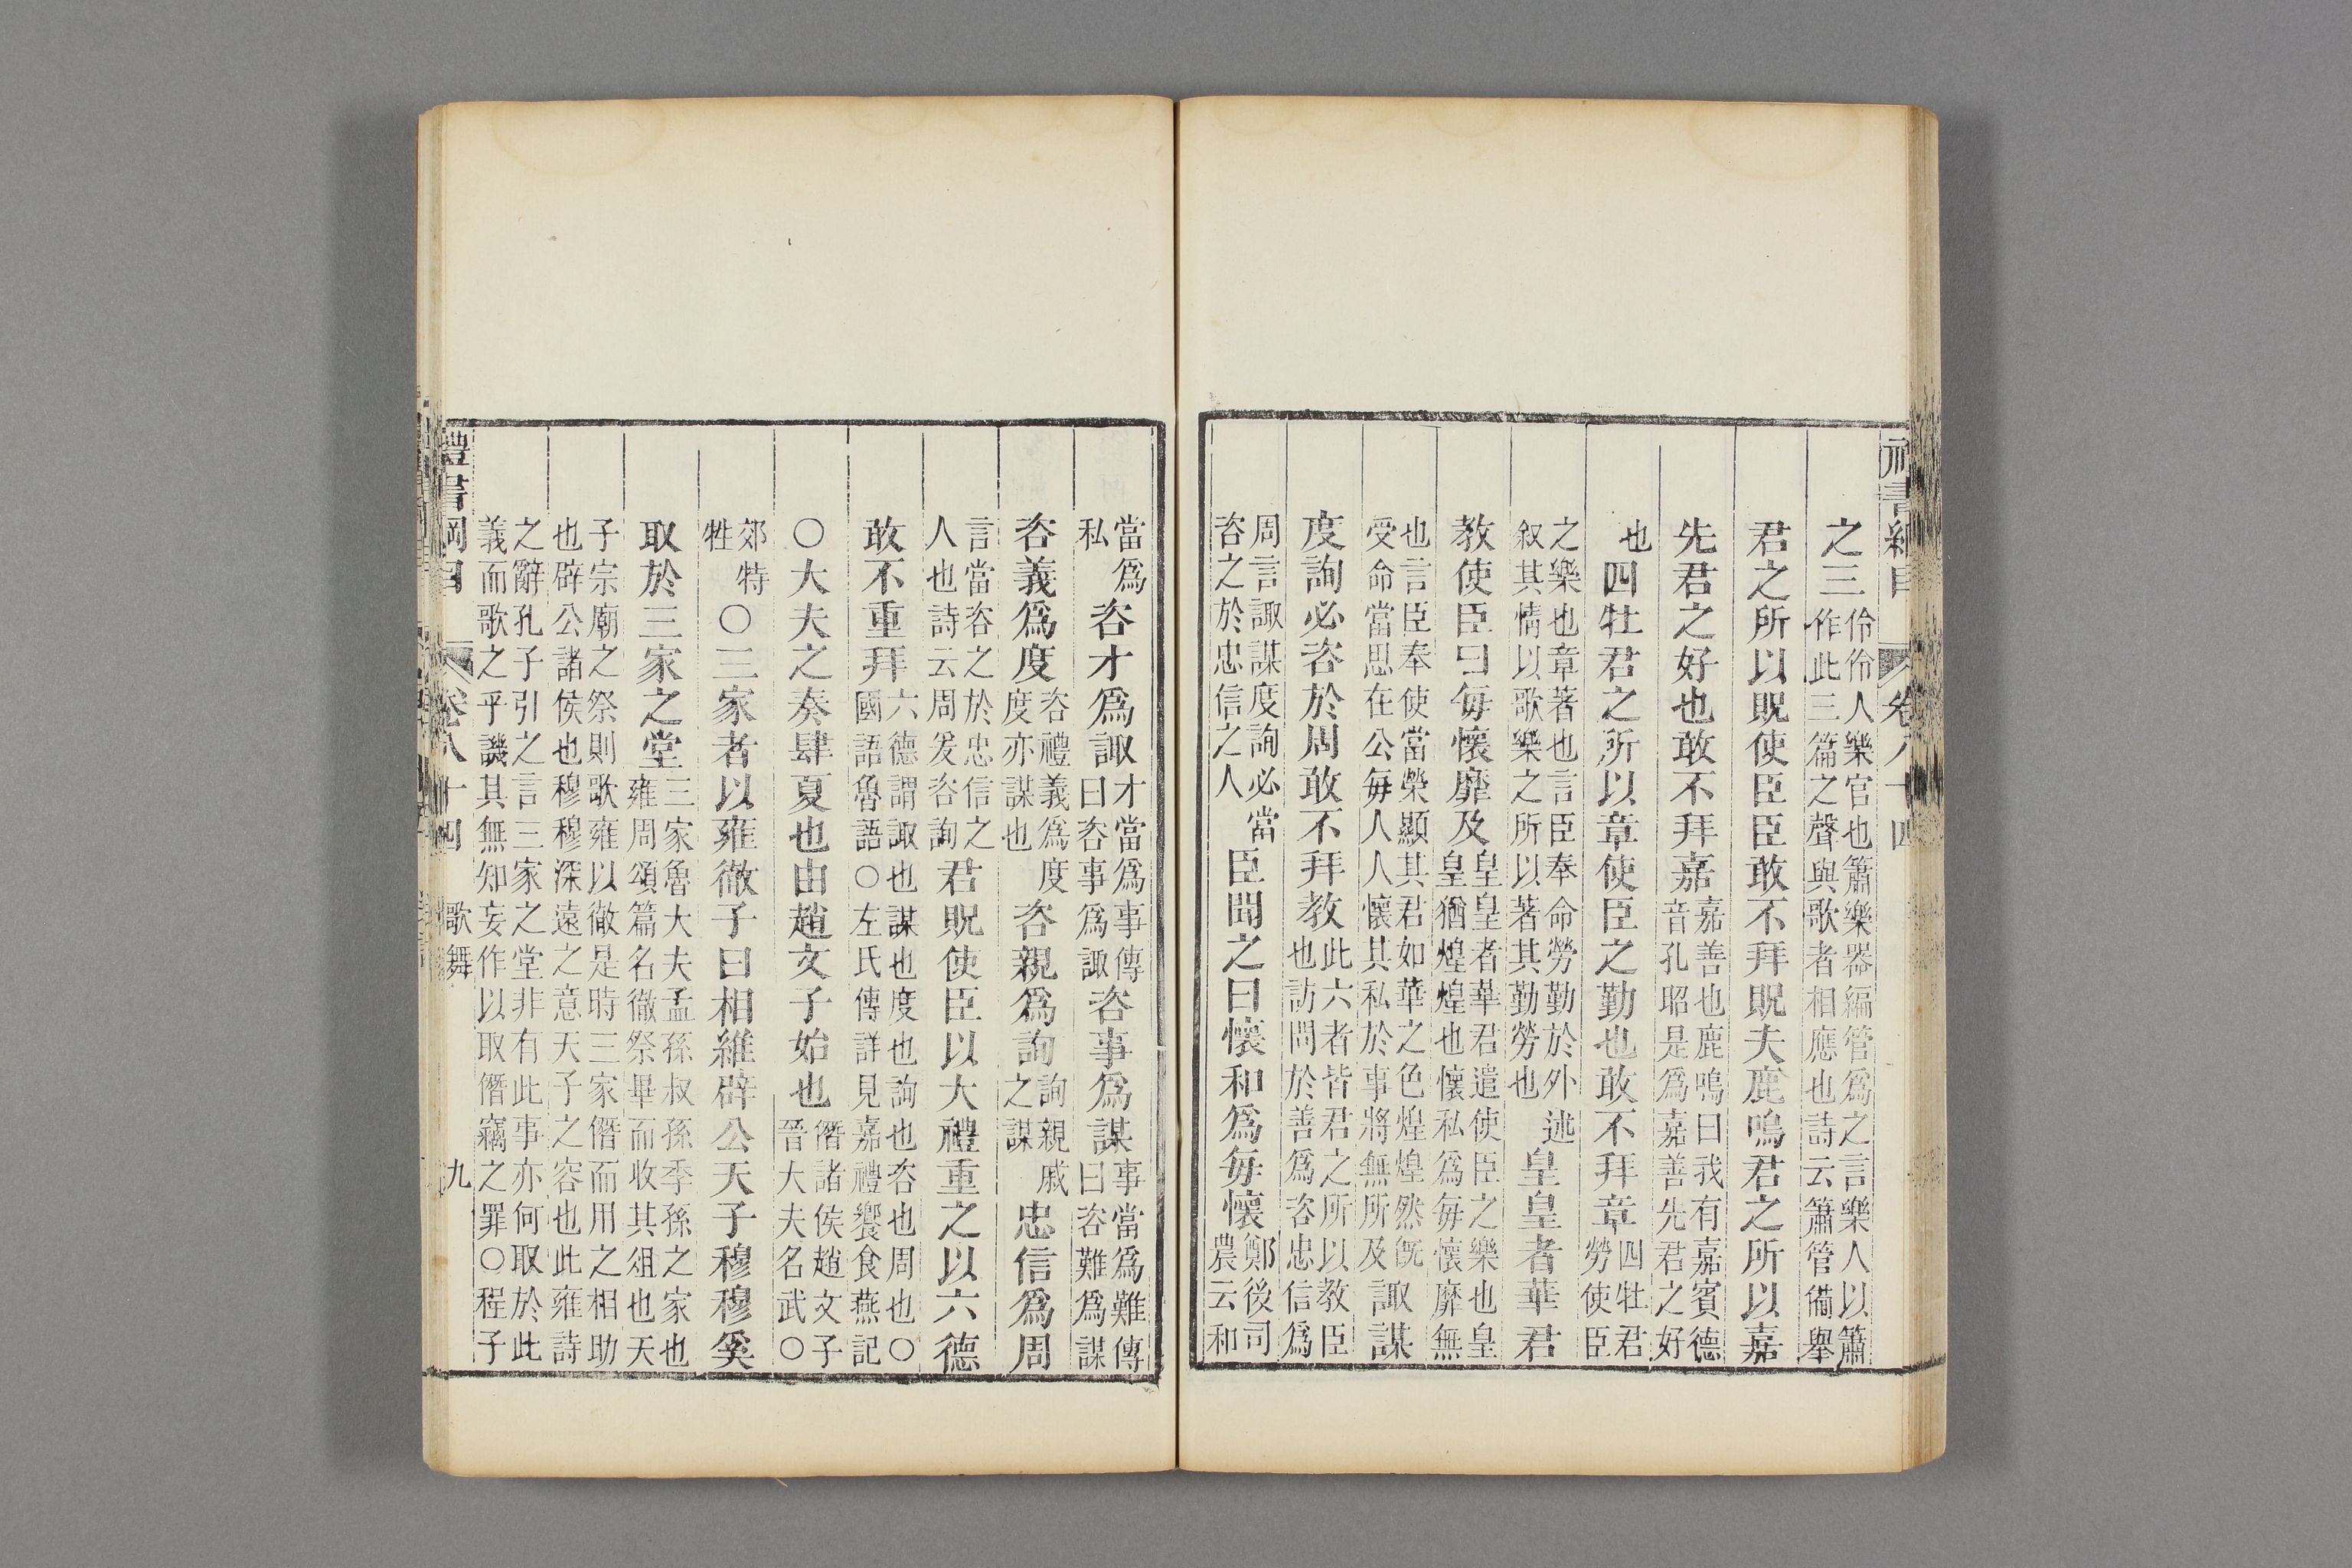 之三伶伶人樂官也簫樂器編管爲之言樂人以簫作此三篇之聲與歌者相應也詩云簫管備舉
君之所以貺使臣臣敢不拜貺夫鹿鳴君之所以嘉
先君之好也敢不拜嘉嘉善也鹿鳴曰我有嘉賓德音孔昭是爲嘉善先君之好
也四牡君之所以章使臣之勤也敢不拜章四牡君勞使臣
之樂也章著也言臣奉命勞勤於外述叙其情以歌樂之所以著其勤勞也皇皇者華君
教使臣曰每懷靡及皇皇者華君遣使臣之樂也皇皇猶煌煌也懷私爲每懷靡無
也言臣奉使當榮顯其君如華之色煌煌然旣受命當思在公每人人懷其私於事將無所及諏謀
度詢必咨於周敢不拜教此六者皆君之所以教臣也訪問於善爲咨忠信爲
周言諏謀度詢必當咨之於忠信之人臣聞之曰懷和爲每懷鄭後司農云和
當爲私咨才爲諏才當爲事傳曰咨事爲諏咨事爲謀事當爲難傳曰咨難爲謀
咨義爲度咨禮義爲度度亦謀也咨親爲詢詢親戚之謀忠信爲周
言當咨之於忠信之人也詩云周爰咨詢君貺使臣以大禮重之以六德
敢不重拜六德謂諏也謀也度也詢也咨也周也○國語魯語○左氏傳詳見嘉禮饗食燕記
○大夫之奏肆夏也由趙文子始也僭諸侯趙文子晉大夫名武○
郊特牲○三家者以雍徹子曰相維辟公天子穆穆奚
取於三家之堂三家魯大夫孟孫叔孫季孫之家也雍周頌篇名徹祭畢而收其俎也天
子宗廟之祭則歌雍以徹是時三家僭而用之相助也辟公諸侯也穆穆深遠之意天子之容也此雍詩
之辭孔子引之言三家之堂非有此事亦何取於此義而歌之乎譏其無知妄作以取僭竊之罪○程子
禮書綱目 卷八十四 歌舞 九